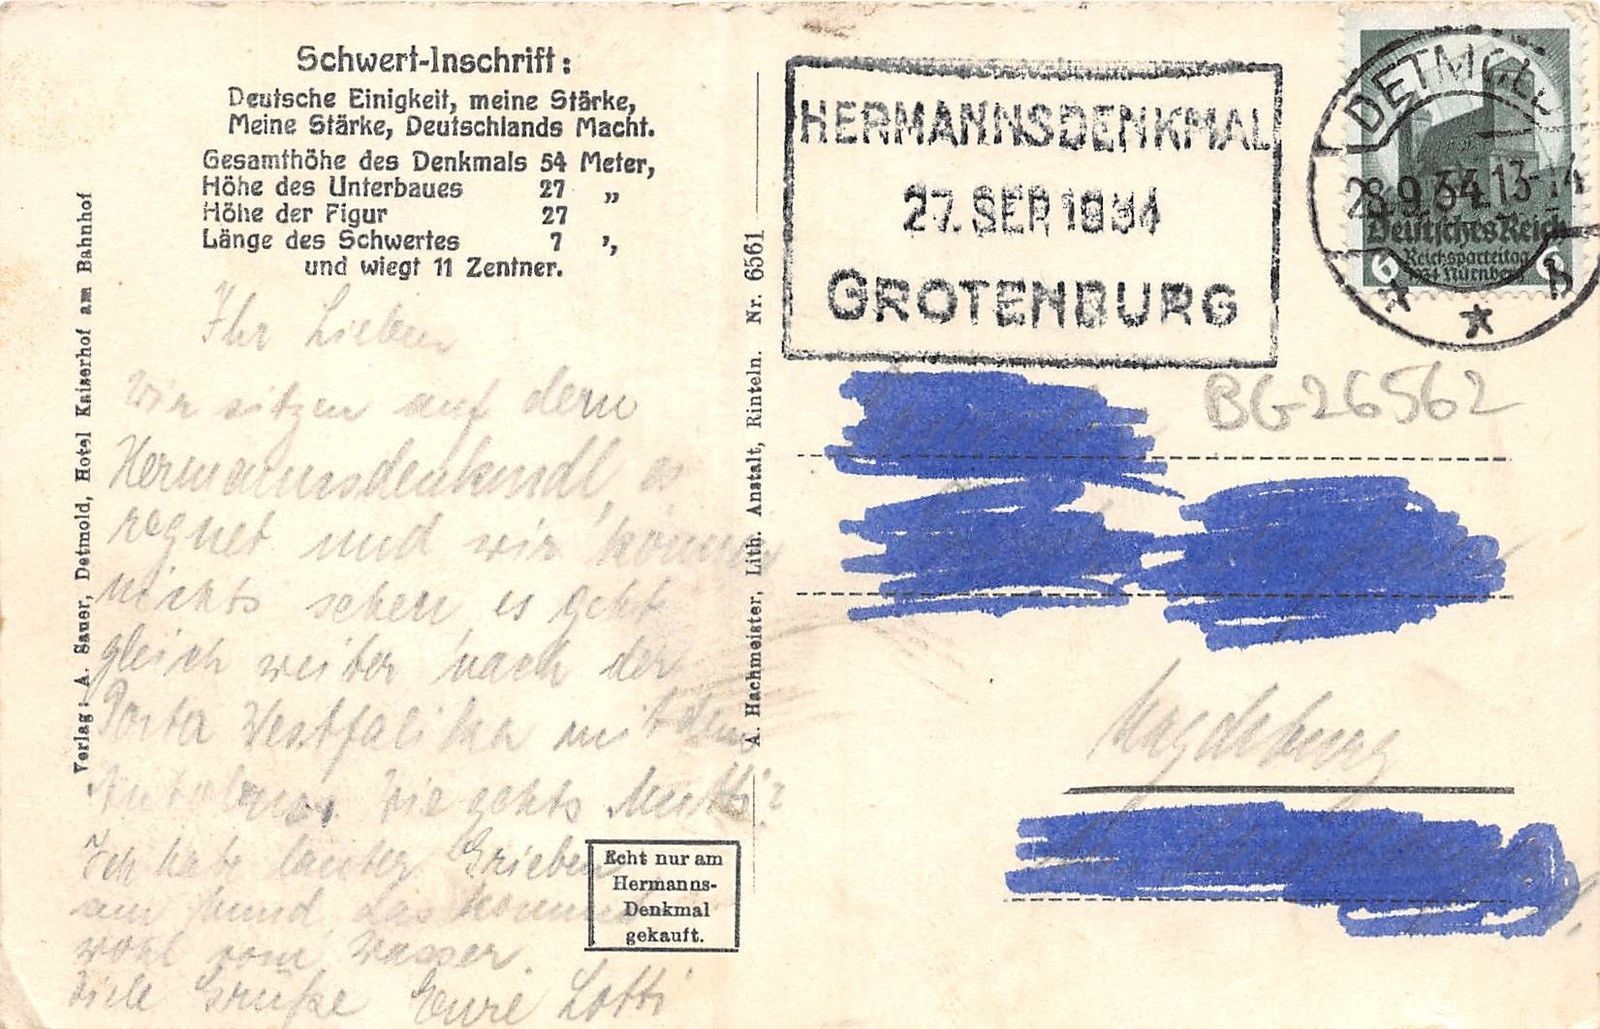 Schwert-Inschrift:
Deutsche Einigkeit, meine Stärke,
Meine Stärke, Deutschlands Macht.
Gesamthöhe des Denkmals 54 Meter,
Höhe des Unterbaues 27 „
Höhe der Figur 27
Länge des Schwertes 7 ",
und wiegt 11 Zentner.
Ihr Lieben
Wir sitzen auf dem
Hermannsdenkmal, es
regnet und wir können
nichts sehen es geht
gleich weiter nach der
Porta Westfalika mit dem
Autobus. Wie gehts Mutti?
Ich habe lauter Grieben
am Mund, das kommt
wohl vom Wasser.
Viele Grüße Eure Lotti
Verlag: A. Sauer, Detmold, Hotel Kaiserhof am Bahnhof
A. Hachmeister, Lith. Anstalt, Rinteln. Nr. 6561
Echt nur am
Hermanns-
Denkmal
gekauft.
HERMANNSDENKMAL
27. SEP. 1934
GROTENBURG
DETMOLD
28.9.34.13-14
B
Deutsches Reich
6 Reichsparteitag 6
1934 Nürnberg
BG26562
Magdeburg